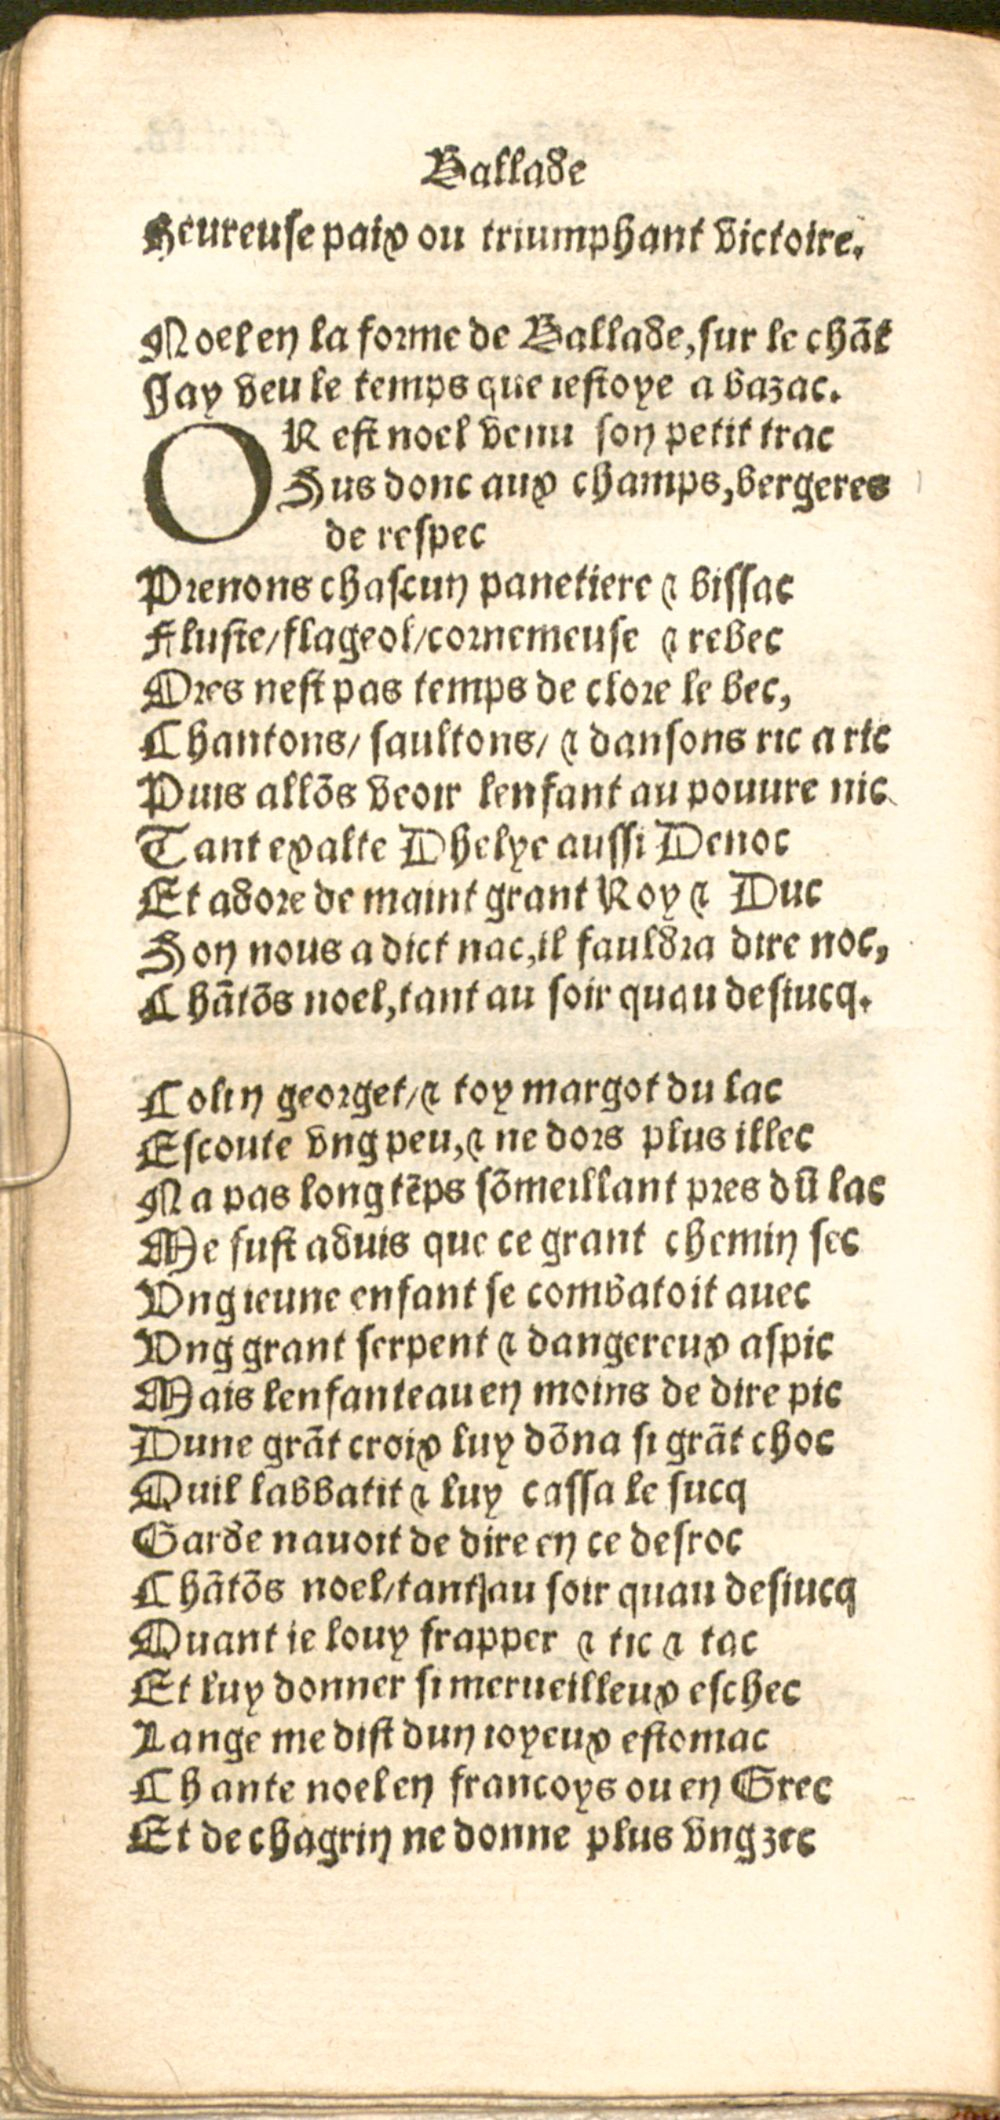 Ballade
Heureuse paix ou triumphant victoire.
Noel en la forme de Ballade, sur le chāt
Jay veu le temps que iestoye a bazac.
OR est noel venu son petit trac
Sus donc aux champs, bergeres
de respec
Prenons chascun panetiere ⁊ bissac
Fluste/ flageol/ cornemeuse ⁊ rebec
Ores nest pas temps de clore le bec,
Chantons/ saultons/ ⁊ dansons ric a ric
Puis allōs veoir lenfant au pouure nic
Tant exalte Dhelye aussi Denoc
Et adore de maint grant Roy ⁊ Duc
Son nous a dict nac, il fauldra dire noc,
Chātōs noel, tant au soir quau desiucq.
Colin georget/ ⁊ toy margot du lac
Escoute vng peu, ⁊ ne dors plus illec
Na pas long tēps sōmeillant pres dū lac
Me fust aduis que ce grant chemin sec
Vng ieune enfant se combatoit auec
Vng grant serpent ⁊ dangereux aspic
Mais lenfanteau en moins de dire pic
Dune grāt croix luy dōna si grāt choc
Quil labbatit ⁊ luy cassa le sucq
Garde nauoit de dire en ce desroc
Chātōs noel/ tant au soir quau desiucq
Quant ie louy frapper ⁊ tic ⁊ tac
Et luy donner si merueilleux eschec
Lange me dist dun ioyeux estomac
Chante noel en francoys ou en Grec
Et de chagrin ne donne plus vng zec